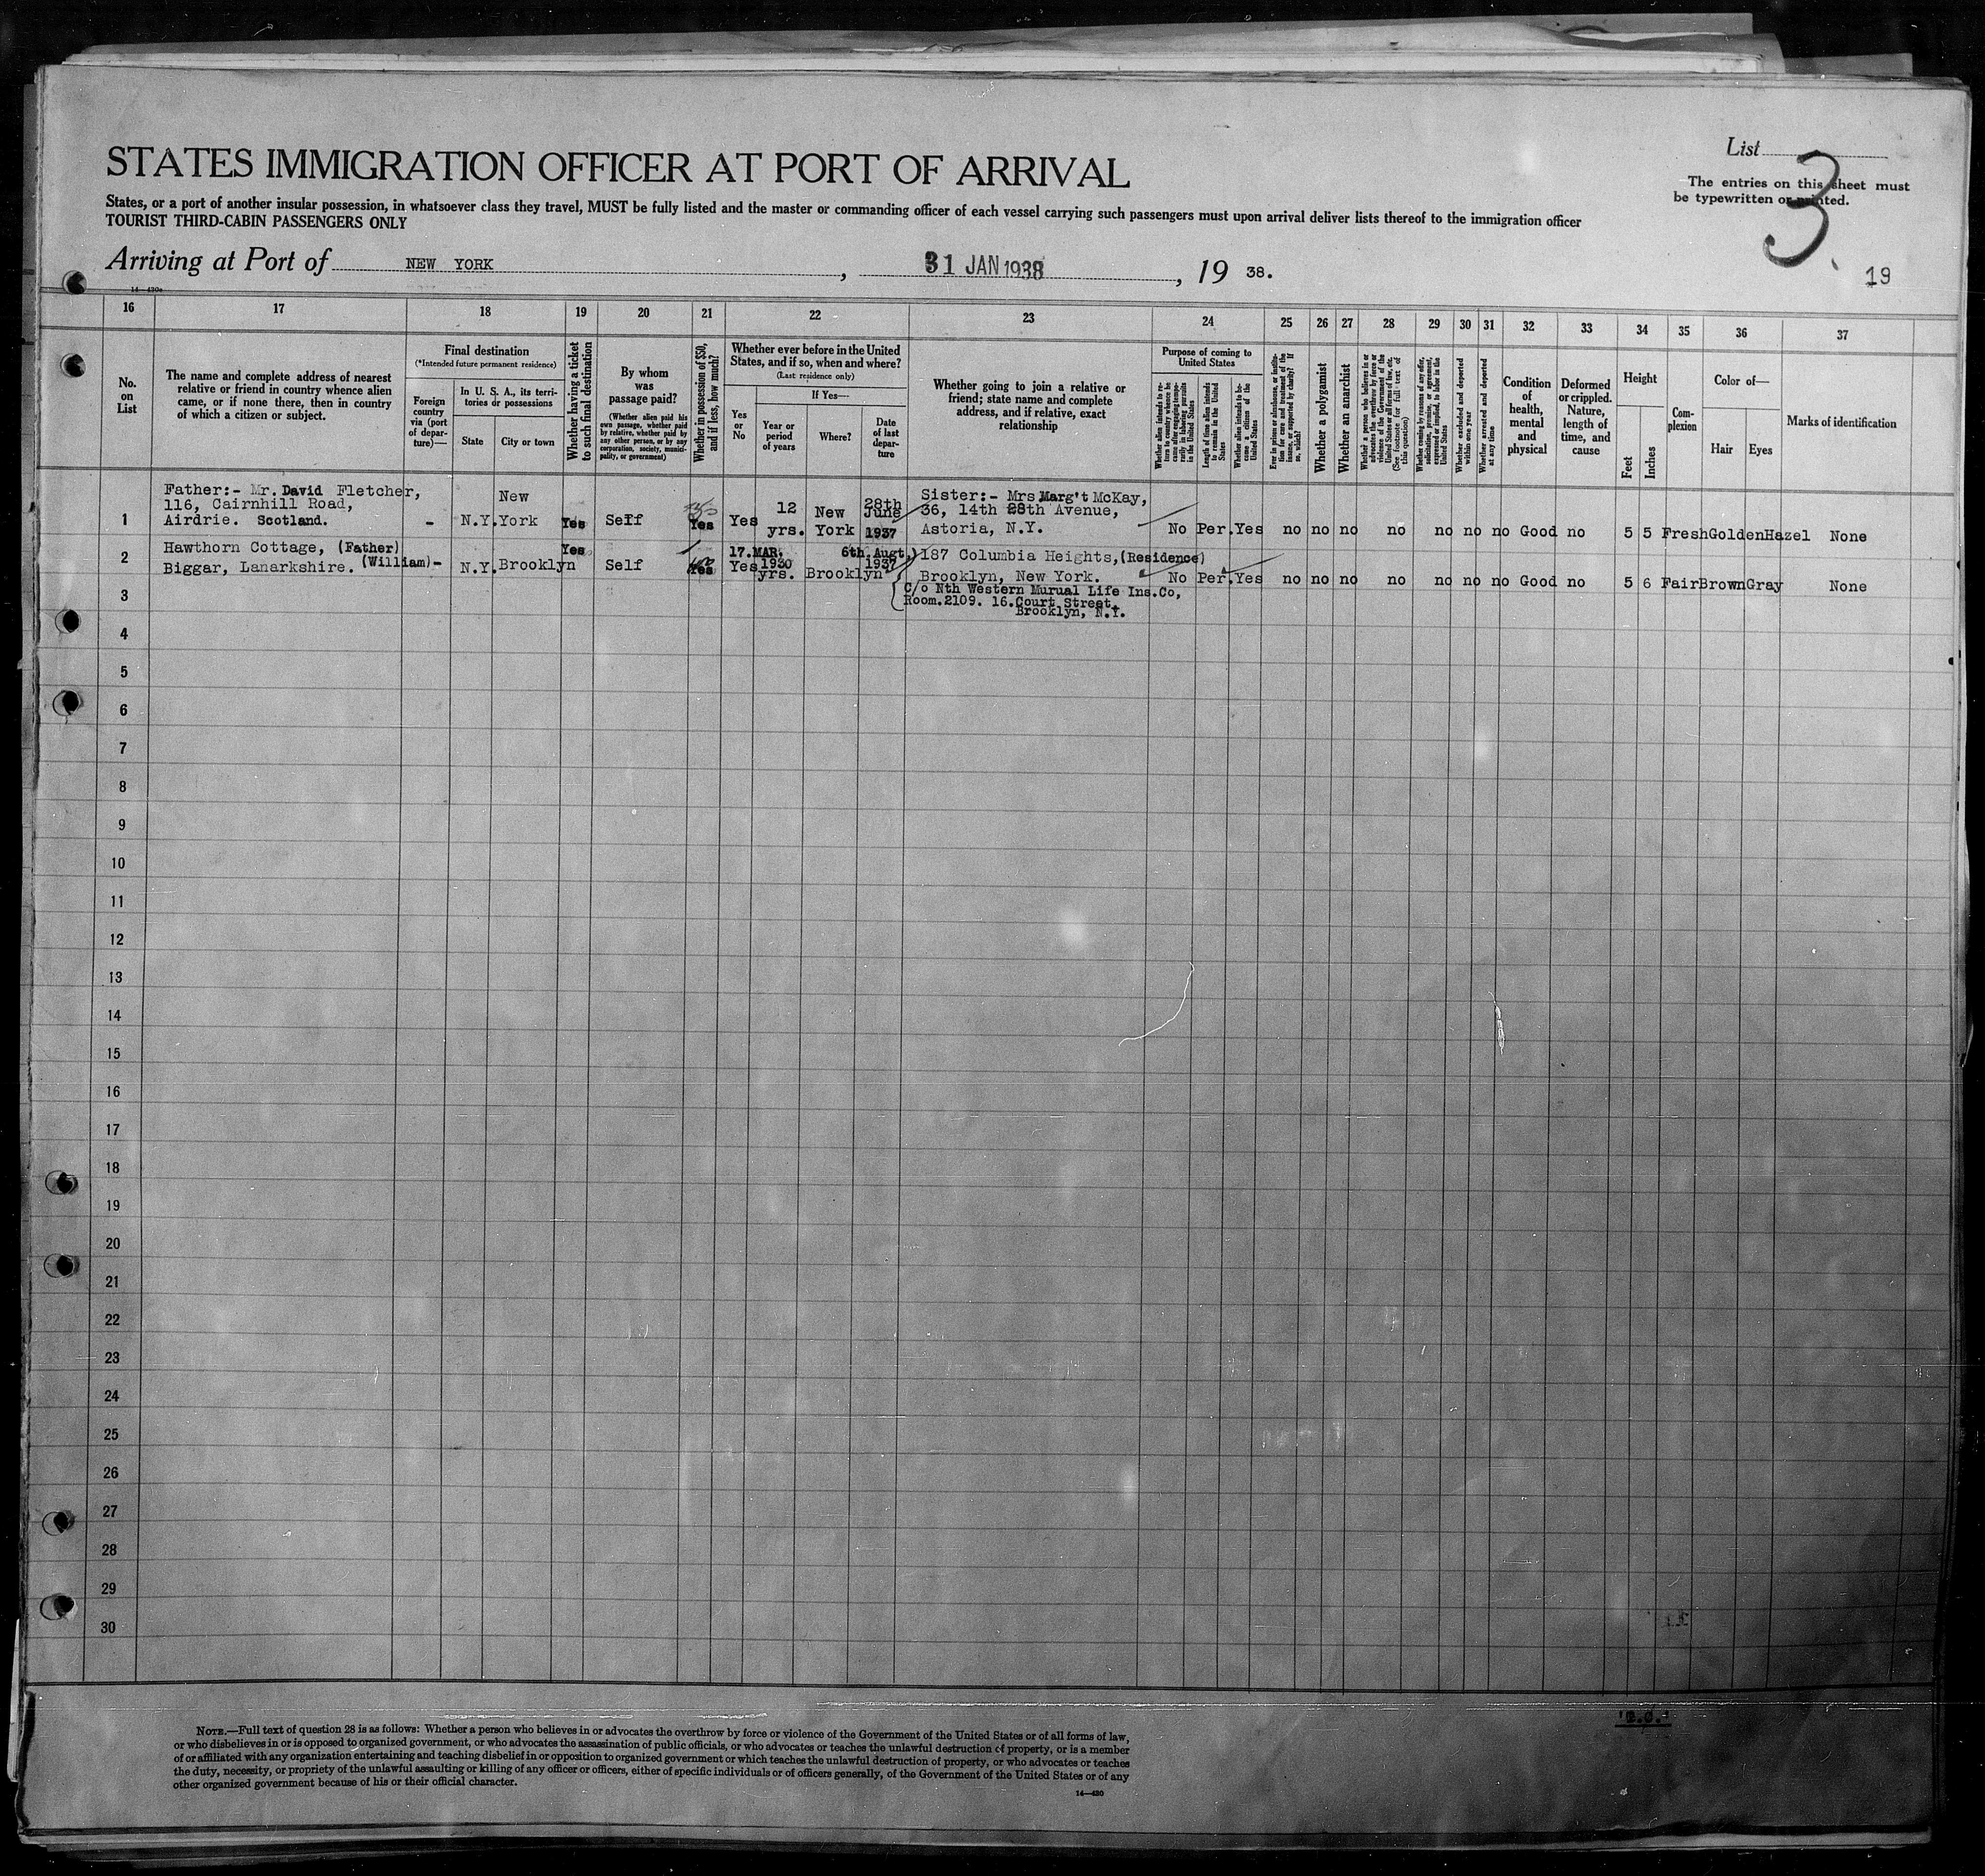 STATES IMMIGRATION OFFICER AT PORT OF ARRIVAL
States, or a port of another insular possession, in whatsoever class they travel, MUST be fully listed and the master or commanding officer of each vessel carrying such passengers must upon arrival deliver lists thereof to the immigration officer
TOURIST THIRD-CABIN PASSENGERS ONLY
List
3
The entries on this sheet must
be typewritten or printed.
Arriving at Port of NEW YORK, 31 JAN 1938, 19 38.
19
16 17 18 19 20 21 22 23 24 25 26 27 28 29 30 31 32 33 34 35 36 37
No.
on
List
The name and complete address of nearest
relative or friend in country whence alien
came, or if none there, then in country
of which a citizen or subject.
Final destination
(*Intended future permanent residence)
Foreign
country
via (port
of depar-
ture)—
In U. S. A., its terri-
tories or possessions
State
City or town
Whether having a ticket
to such final destination
By whom
was
passage paid?
(Whether alien paid his
own passage, whether paid
by relative, whether paid by
any other person, or by any
corporation, society, munici-
pality, or government)
Whether in possession of $50,
and if less, how much?
Whether ever before in the United
States, and if so, when and where?
(Last residence only)
Yes
or
No
If Yes—
Year or
period
of years
Where?
Date
of last
depar-
ture
Whether going to join a relative or
friend; state name and complete
address, and if relative, exact
relationship
Purpose of coming to
United States
Whether alien intends to re-
turn to country whence he
came after engaging tempo-
rarily in laboring pursuits
in the United States
Length of time alien intends
to remain in the United
States
Whether alien intends to be-
come a citizen of the
United States
Ever in prison or almshouse, or institu-
tion for care and treatment of the
insane, or supported by charity? If
so, which?
Whether a polygamist
Whether an anarchist
Whether a person who believes in or
advocates the overthrow by force or
violence of the Government of the
United States or all forms of law, etc.
(See footnote for full text of
this question)
Whether coming by reason of any offer,
solicitation, promise, or agreement,
expressed or implied, to labor in the
United States
Whether excluded and deported
within one year
Whether arrested and deported
at any time
Condition
of
health,
mental
and
physical
Deformed
or crippled.
Nature,
length of
time, and
cause
Height
Feet
Inches
Com-
plexion
Color of—
Hair
Eyes
Marks of identification
1
Father:- Mr. David Fletcher,
116, Cairnhill Road,
Airdrie. Scotland.
- N.Y. New
York Yes Self Yes Yes 12
yrs. New
York 28th
June
1937
Sister:- Mrs Marg't McKay,
36, 14th 28th Avenue,
Astoria, N.Y.
No Per. Yes no no no no no no no Good no 5 5 Fresh Golden Hazel None
2
Hawthorn Cottage, (Father)
Biggar, Lanarkshire. (William)
- N.Y. Brooklyn Yes Self Yes Yes 17.MAR.
1930
yrs. Brooklyn 6th.Augt.
1937
187 Columbia Heights, (Residence)
Brooklyn, New York.
No Per. Yes no no no no no no no Good no 5 6 Fair Brown Gray None
3
C/o Nth Western Murual Life Ins.Co,
Room.2109. 16.Court Street,
Brooklyn, N.Y.
4
5
6
7
8
9
10
11
12
13
14
15
16
17
18
19
20
21
22
23
24
25
26
27
28
29
30
NOTE.—Full text of question 28 is as follows: Whether a person who believes in or advocates the overthrow by force or violence of the Government of the United States or of all forms of law,
or who disbelieves in or is opposed to organized government, or who advocates the assassination of public officials, or who advocates or teaches the unlawful destruction of property, or is a member
of or affiliated with any organization entertaining and teaching disbelief in or opposition to organized government or which teaches the unlawful destruction of property, or who advocates or teaches
the duty, necessity, or propriety of the unlawful assaulting or killing of any officer or officers, either of specific individuals or of officers generally, of the Government of the United States or of any
other organized government because of his or their official character.
14—430